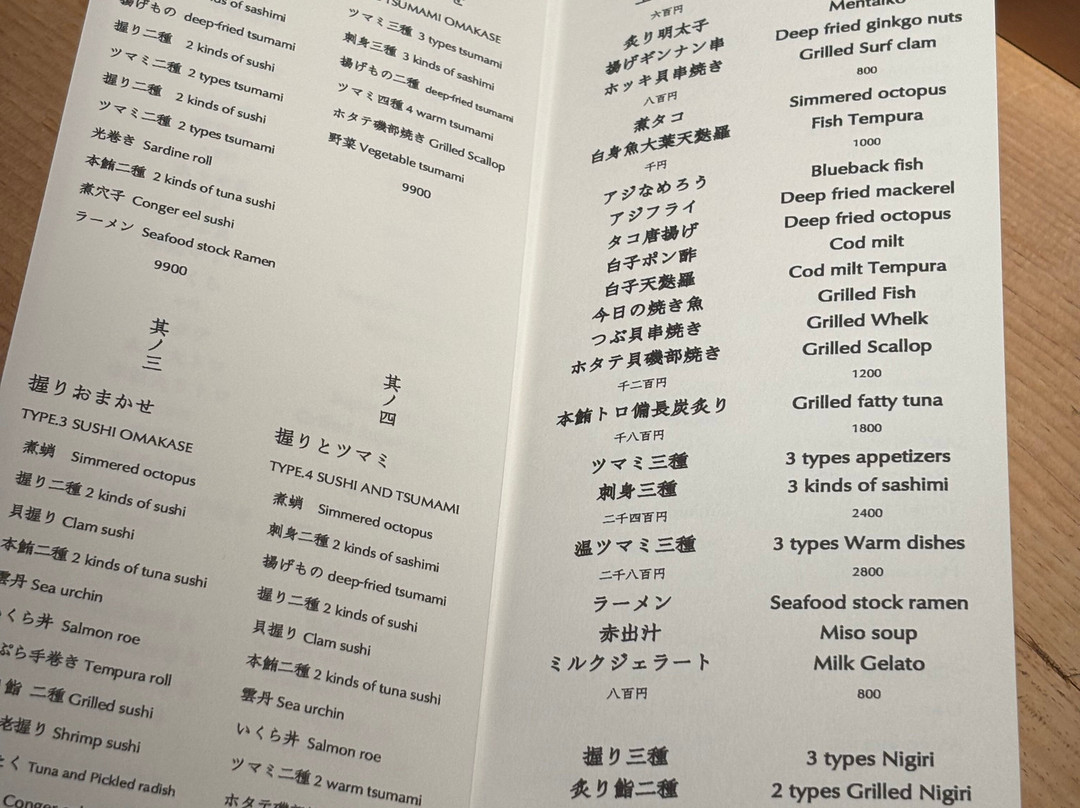 揚げもの deep-fried tsumami
握り二種 2 kinds of sushi
ツマミ二種 2 types tsumami
握り二種 2 kinds of sushi
ツマミ二種 2 types tsumami
光巻き Sardine roll
本鮪二種 2 kinds of tuna sushi
煮穴子 Conger eel sushi
ラーメン Seafood stock Ramen
9900
TSUMAMI OMAKASE
ツマミ三種 3 types tsumami
刺身三種 3 kinds of sashimi
揚げもの二種 deep-fried tsumami
ツマミ四種 4 warm tsumami
ホタテ磯部焼き Grilled Scallop
野菜 Vegetable tsumami
9900
其ノ三
握りおまかせ
TYPE.3 SUSHI OMAKASE
煮蛸 Simmered octopus
握り二種 2 kinds of sushi
貝握り Clam sushi
本鮪二種 2 kinds of tuna sushi
雲丹 Sea urchin
くら丼 Salmon roe
ぷら手巻き Tempura roll
鮨 二種 Grilled sushi
老握り Shrimp sushi
たく Tuna and Pickled radish
Conger
其ノ四
握りとツマミ
TYPE.4 SUSHI AND TSUMAMI
煮蛸 Simmered octopus
刺身二種 2 kinds of sashimi
揚げもの deep-fried tsumami
握り二種 2 kinds of sushi
貝握り Clam sushi
本鮪二種 2 kinds of tuna sushi
雲丹 Sea urchin
いくら丼 Salmon roe
ツマミ二種 2 warm tsumami
ホタテ磯部焼き Grilled
六百円
炙り明太子 Mentaiko
揚げギンナン串 Deep fried ginkgo nuts
ホッキ貝串焼き Grilled Surf clam
八百円 800
煮タコ Simmered octopus
白身魚大葉天麩羅 Fish Tempura
千円 1000
アジなめろう Blueback fish
アジフライ Deep fried mackerel
タコ唐揚げ Deep fried octopus
白子ポン酢 Cod milt
白子天麩羅 Cod milt Tempura
今日の焼き魚 Grilled Fish
つぶ貝串焼き Grilled Whelk
ホタテ貝磯部焼き Grilled Scallop
千二百円 1200
本鮪トロ備長炭炙り Grilled fatty tuna
千八百円 1800
ツマミ三種 3 types appetizers
刺身三種 3 kinds of sashimi
二千四百円 2400
温ツマミ三種 3 types Warm dishes
二千八百円 2800
ラーメン Seafood stock ramen
赤出汁 Miso soup
ミルクジェラート Milk Gelato
八百円 800
握り三種 3 types Nigiri
炙り鮨二種 2 types Grilled Nigiri